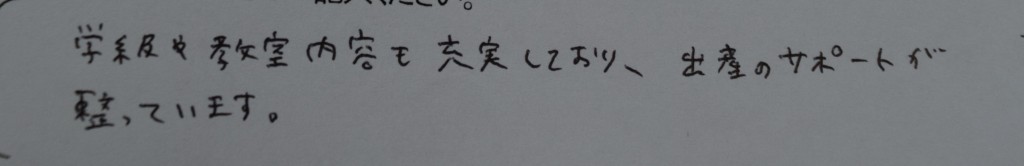 ください。
学級や教室内容も充実しており、出産のサポートが
整っています。